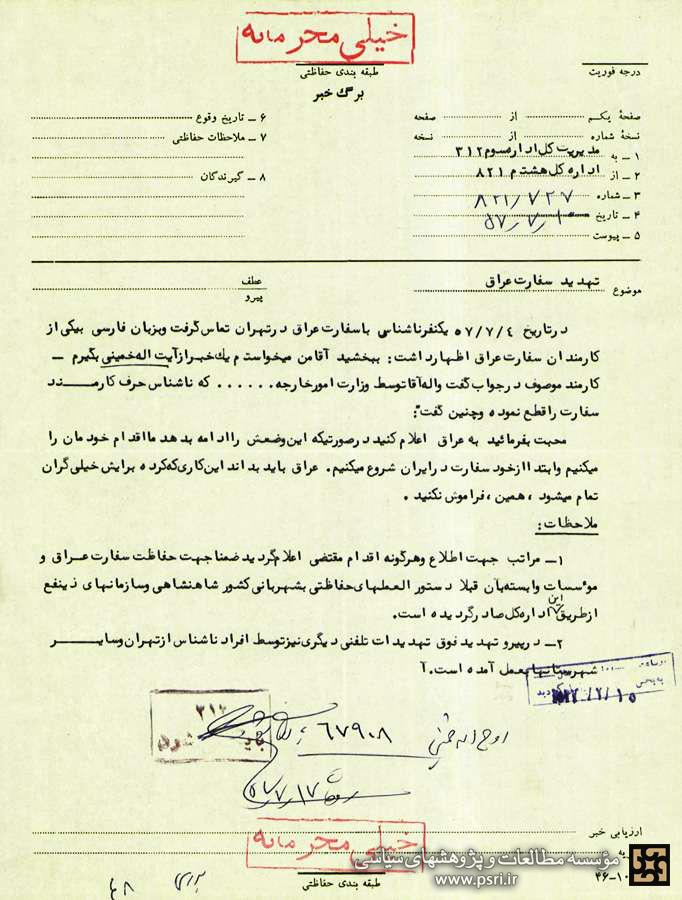 خیلی محرمانه
طبقه بندی حفاظتی
درجه فوریت
برگ خبر
صفحهٔ یکم از صفحه
نسخهٔ شماره از نسخه
۱ – به مدیریت کل اداره سوم ۳۱۲
۲ – از اداره کل هشتم ۸۲۱
۳ – شماره ۸۲۱/۷۲۷
۴ – تاریخ ۵۷/۷/۱۰
۵ – پیوست
۶ – تاریخ وقوع
۷ – ملاحظات حفاظتی
۸ – گیرندگان
موضوع تهدید سفارت عراق
عطف
پیرو
در تاریخ ۵۷/۷/۴ یکنفر ناشناس با سفارت عراق در تهران تماس گرفت و بزبان فارسی بیکی از
کارمندان سفارت عراق اظهار داشت: ببخشید آقا من میخواستم یك خبر از آیت اله خمینی بگیرم –
کارمند موصوف در جواب گفت واله آقا توسط وزارت امور خارجه...... که ناشناس حرف کارمند
سفارت را قطع نموده و چنین گفت":
محبت بفرمائید به عراق اعلام کنید در صورتیکه این وضعش را ادامه بدهد ما اقدام خودمان را
میکنیم و ابتدا از خود سفارت در ایران شروع میکنیم. عراق باید بداند این کاری که کرده برایش خیلی گران
تمام میشود، همین، فراموش نکنید.
ملاحظات:
۱– مراتب جهت اطلاع و هرگونه اقدام مقتضی اعلام گردید ضمنا جهت حفاظت سفارت عراق و
مؤسسات وابسته بآن قبلا دستورالعملهای حفاظتی بشهربانی کشور شاهنشاهی و سازمانهای ذینفع
از طریق این اداره کل صادر گردیده است.
۲– در پیرو تهدید فوق تهدیدات تلفنی دیگری نیز توسط افراد ناشناس از تهران و سایر
شهرستانها بعمل آمده است. آ
۳۱۲
۶۷۹۰۸
روح اله خمینی
۵۷/۷/۱۷
ارزیابی خبر
خیلی محرمانه
به
طبقه بندی حفاظتی
۴۶-۱۰
۴۸
مؤسسه مطالعات و پژوهشهای سیاسی
www.psri.ir